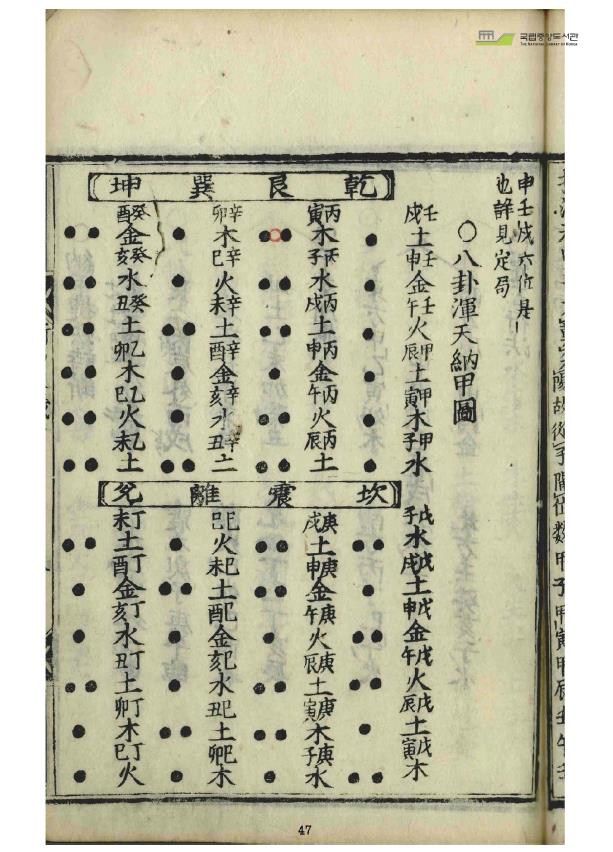 국립중앙도서관
THE NATIONAL LIBRARY OF KOREA
陽故從子隔位数甲子甲寅甲辰壬午壬
申壬戌六位是
也詳見定局
○八卦渾天納甲圖
乾艮巽坤
壬戌土壬申金壬午火甲辰土甲寅木甲子水
丙寅木丙子水丙戌土丙申金丙午火丙辰土
辛卯木辛巳火辛未土辛酉金辛亥水辛丑土
癸酉金癸亥水癸丑土乙卯木乙巳火乙未土
坎震離兌
戊子水戊戌土戊申金戊午火戊辰土戊寅木
庚戌土庚申金庚午火庚辰土庚寅木庚子水
己巳火己未土己酉金己亥水己丑土己卯木
丁未土丁酉金丁亥水丁丑土丁卯木丁巳火
47